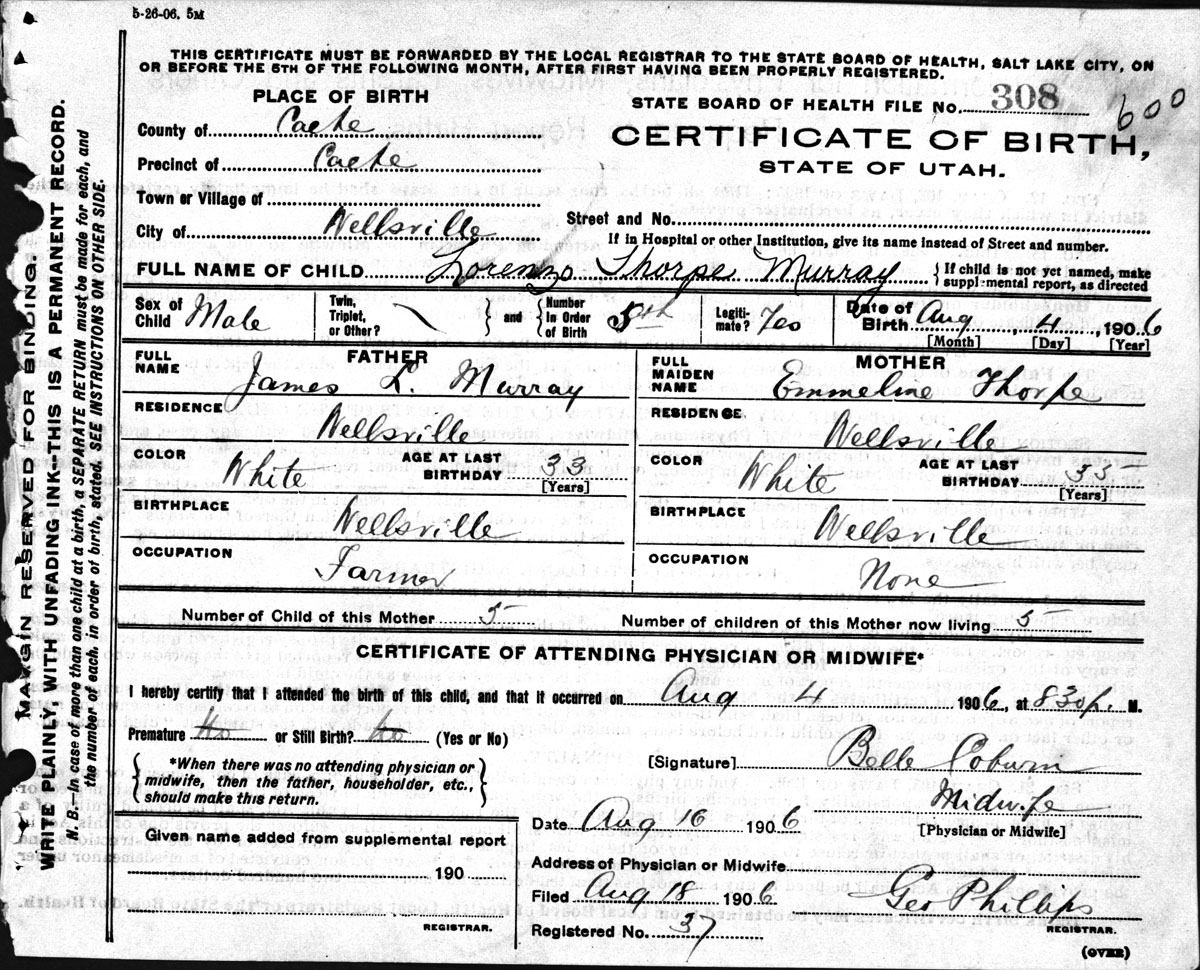 5-26-06. 5M
THIS CERTIFICATE MUST BE FORWARDED BY THE LOCAL REGISTRAR TO THE STATE BOARD OF HEALTH, SALT LAKE CITY, ON
OR BEFORE THE 5TH OF THE FOLLOWING MONTH, AFTER FIRST HAVING BEEN PROPERLY REGISTERED.
MARGIN RESERVED FOR BINDING.
WRITE PLAINLY, WITH UNFADING INK—THIS IS A PERMANENT RECORD.
N. B.—In case of more than one child at a birth, a SEPARATE RETURN must be made for each, and
the number of each, in order of birth, stated. SEE INSTRUCTIONS ON OTHER SIDE.
PLACE OF BIRTH
STATE BOARD OF HEALTH FILE No. 308
600
County of Cache
CERTIFICATE OF BIRTH,
Precinct of Cache
STATE OF UTAH.
Town or Village of
City of Wellsville
Street and No.
If in Hospital or other Institution, give its name instead of Street and number.
FULL NAME OF CHILD Lorenzo Thorpe Murray
{If child is not yet named, make
supplemental report, as directed
Sex of Child Male
Twin, Triplet, or Other? \
{and} Number In Order of Birth 5th
Legitimate? Yes
Date of Birth Aug 4, 1906
[Month] [Day] [Year]
FATHER
FULL NAME James L. Murray
RESIDENCE Wellsville
COLOR White
AGE AT LAST BIRTHDAY 33
[Years]
BIRTHPLACE Wellsville
OCCUPATION Farmer
MOTHER
FULL MAIDEN NAME Emmeline Thorpe
RESIDENCE Wellsville
COLOR White
AGE AT LAST BIRTHDAY 35
[Years]
BIRTHPLACE Wellsville
OCCUPATION None
Number of Child of this Mother 5
Number of children of this Mother now living 5
CERTIFICATE OF ATTENDING PHYSICIAN OR MIDWIFE*
I hereby certify that I attended the birth of this child, and that it occurred on Aug 4 1906, at 830 p. M.
Premature No or Still Birth? No (Yes or No)
{*When there was no attending physician or
midwife, then the father, householder, etc.,
should make this return.}
[Signature] Belle Coburn
Midwife
[Physician or Midwife]
Date Aug 16 1906
Given name added from supplemental report
190
REGISTRAR.
Address of Physician or Midwife
Filed Aug 18 1906
Geo Phillips
REGISTRAR.
Registered No. 37
(OVER)